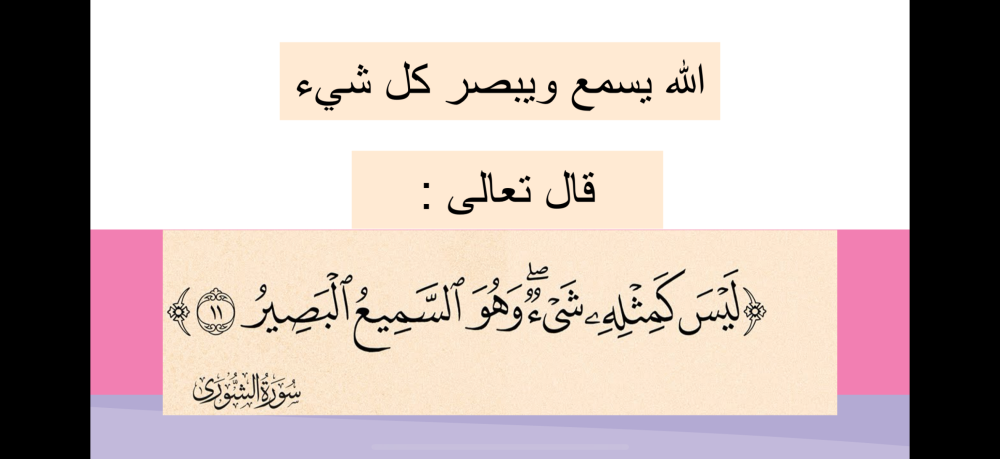 الله يسمع ويبصر كل شيء
قال تعالى :
﴿لَيْسَ كَمِثْلِهِۦ شَىْءٌۭ ۖ وَهُوَ ٱلسَّمِيعُ ٱلْبَصِيرُ ١١﴾
سُورَةُ الشُّورَى